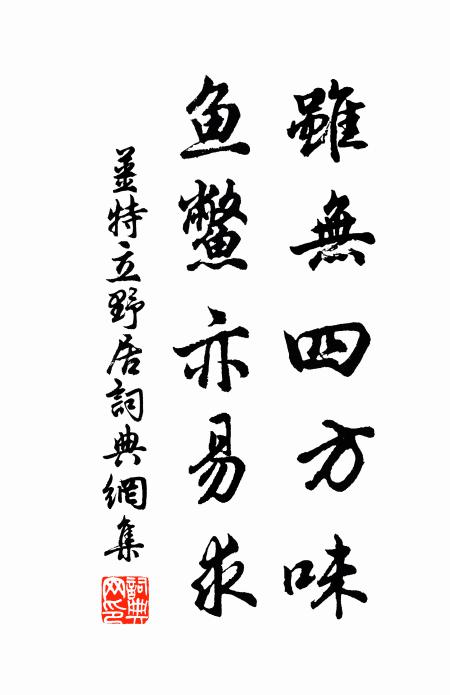 雖無四方味
魚鱉亦易求
姜特立野居詞典網集
詞典網印